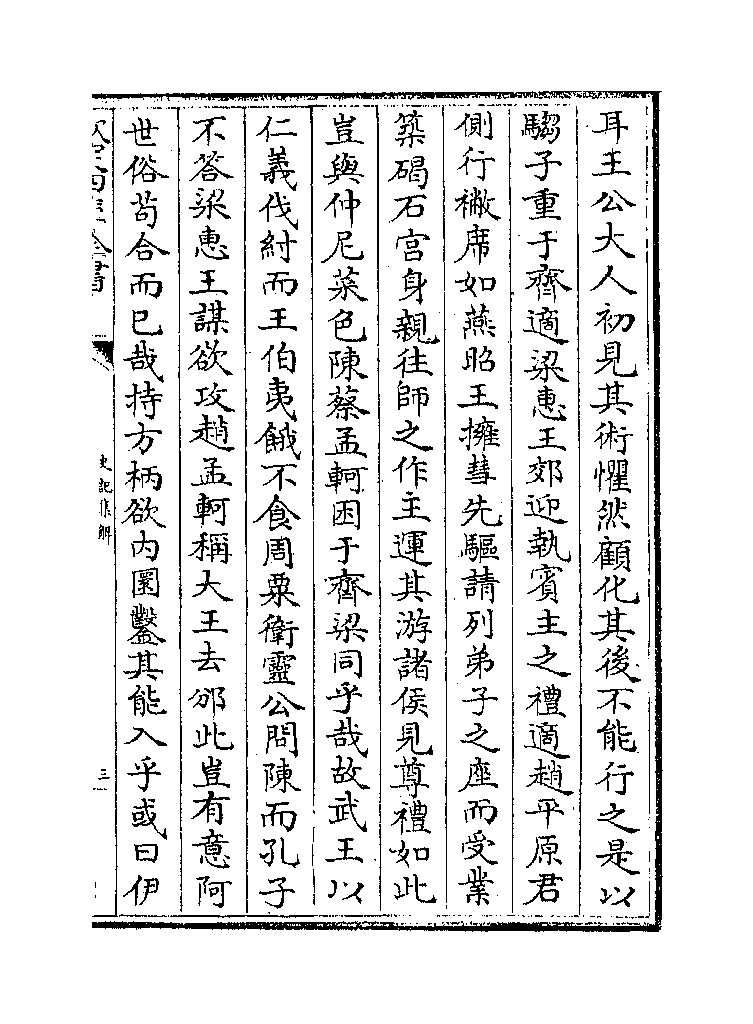 耳王公大人初見其術懼然顧化其後不能行之是以
騶子重于齊適梁惠王郊迎執賓主之禮適趙平原君
側行襒席如燕昭王擁彗先驅請列弟子之座而受業
築碣石宮身親往師之作主運其游諸侯見尊禮如此
豈與仲尼菜色陳蔡孟軻困于齊梁同乎哉故武王以
仁義伐紂而王伯夷餓不食周粟衛靈公問陳而孔子
不答梁惠王謀欲攻趙孟軻稱大王去邠此豈有意阿
世俗茍合而已哉持方柄欲内圜鑿其能入乎或曰伊
史記集解
三